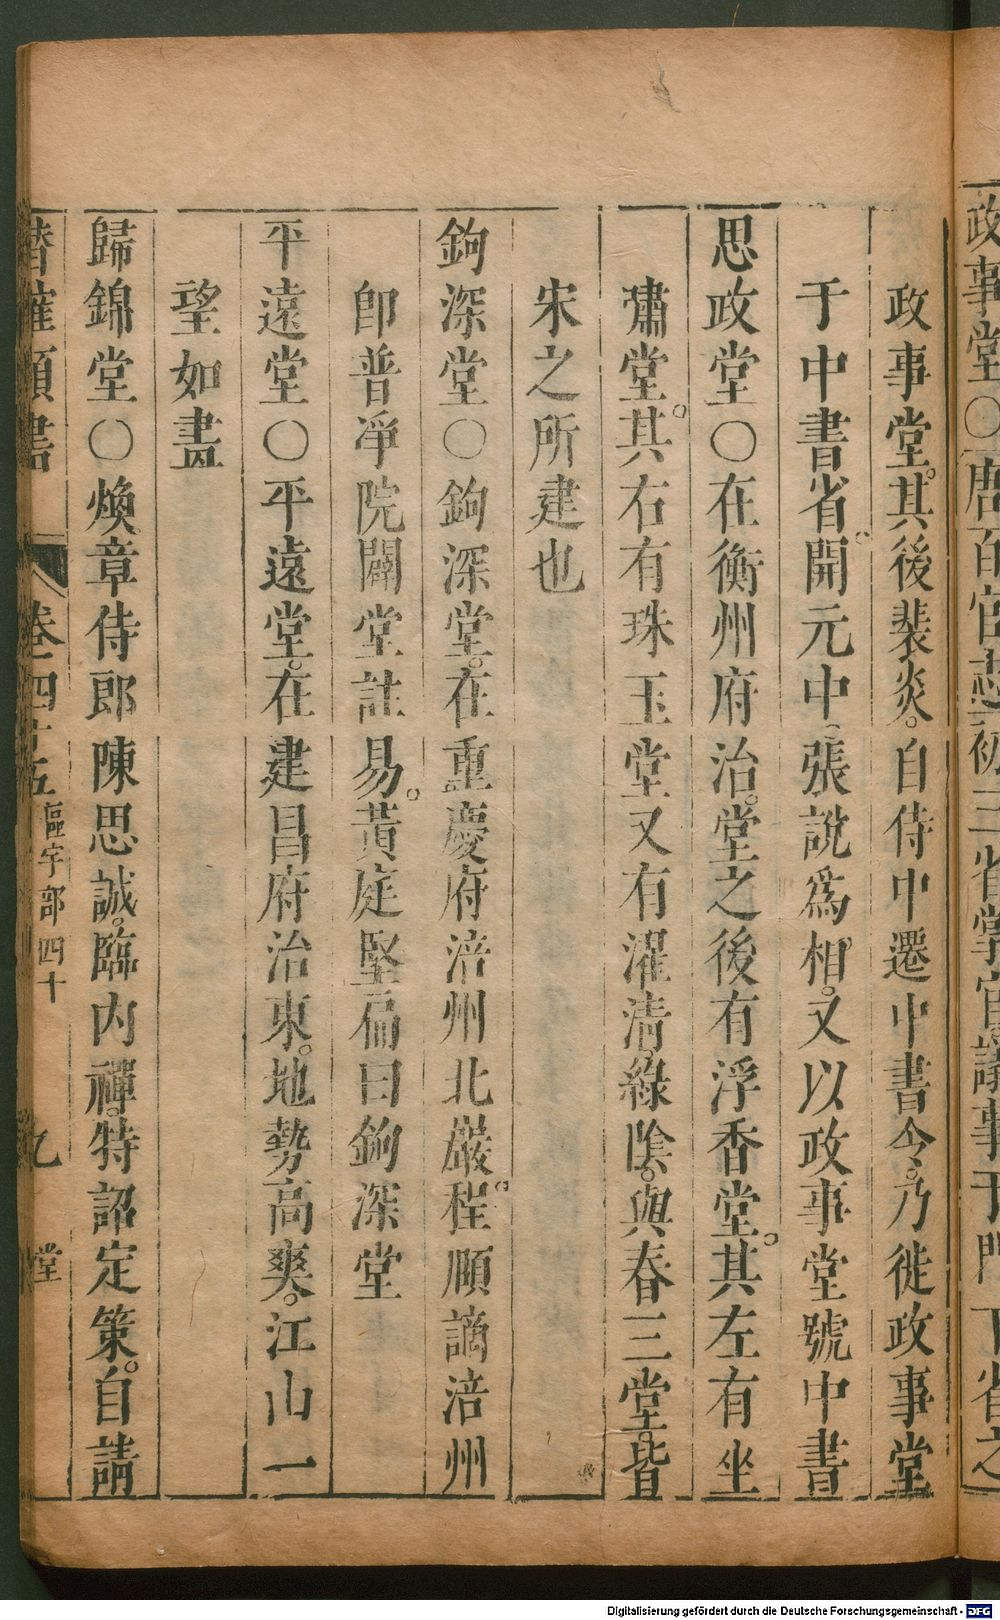 政事堂○唐百官志初三省掌官議事于門下省之
政事堂。其後裴炎。自侍中遷中書令。乃徙政事堂
于中書省。開元中張說爲相。又以政事堂號中書
思政堂○在衡州府治。堂之後有浮香堂。其左有坐
嘯堂。其右有珠玉堂又有濯清綠陰。與春三堂。皆
宋之所建也
鉤深堂○鉤深堂。在重慶府涪州北巖。程頤謫涪州
卽普淨院闢堂註易。黃庭堅扁曰鉤深堂
平遠堂○平遠堂。在建昌府治東。地勢高爽。江山一
望如畫
歸錦堂○煥章侍郎陳思誠。臨內禪。特詔定策。自請
卷四十五 區宇部四十 九 堂
Digitalisierung gefördert durch die Deutsche Forschungsgemeinschaft - DFG